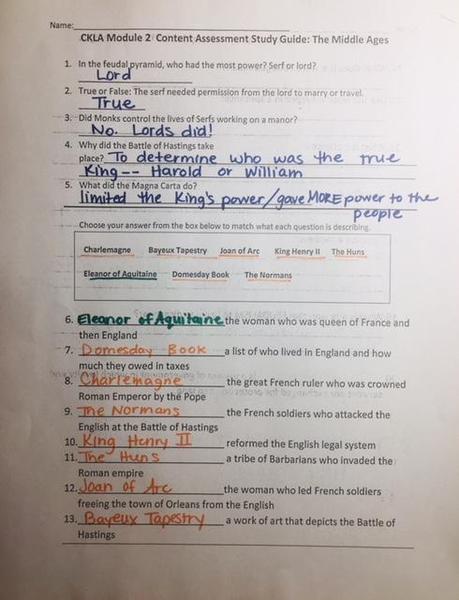 Name:
CKLA Module 2 Content Assessment Study Guide: The Middle Ages
1. In the feudal pyramid, who had the most power? Serf or lord?
Lord
2. True or False: The serf needed permission from the lord to marry or travel.
True
3. Did Monks control the lives of Serfs working on a manor?
No. Lords did!
4. Why did the Battle of Hastings take
place? To determine who was the true
King -- Harold or William
5. What did the Magna Carta do?
limited the King's power/gave MORE power to the
people
Choose your answer from the box below to match what each question is describing.
Charlemagne Bayeux Tapestry Joan of Arc King Henry II The Huns
Eleanor of Aquitaine Domesday Book The Normans
6. Eleanor of Aquitaine the woman who was queen of France and
then England
7. Domesday Book a list of who lived in England and how
much they owed in taxes
8. Charlemagne the great French ruler who was crowned
Roman Emperor by the Pope
9. The Normans the French soldiers who attacked the
English at the Battle of Hastings
10. King Henry II reformed the English legal system
11. The Huns a tribe of Barbarians who invaded the
Roman empire
12. Joan of Arc the woman who led French soldiers
freeing the town of Orleans from the English
13. Bayeux Tapestry a work of art that depicts the Battle of
Hastings